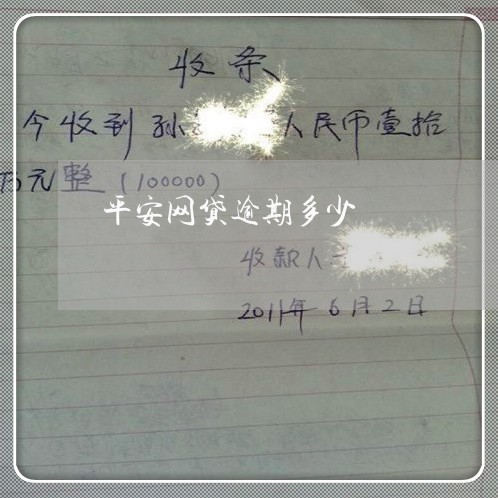 收条
今收到孙 人民币壹拾
万元整(100000)
平安网贷逾期多少
收款人
2011年6月2日